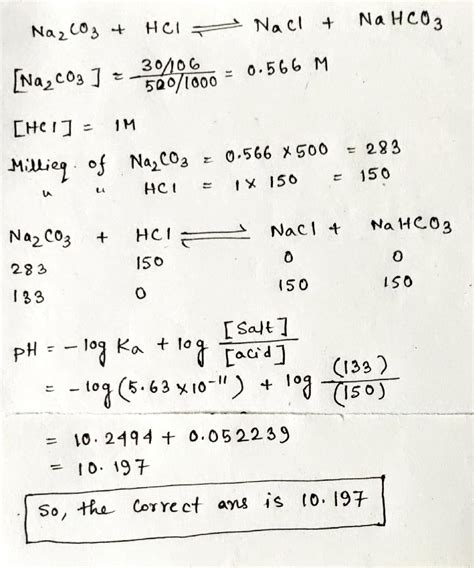 Na2CO3 + HCl ⇌ NaCl + NaHCO3
[Na2CO3] = 30/106 / 500/1000 = 0.566 M
[HCl] = 1M
Millieq. of Na2CO3 = 0.566 × 500 = 283
" " HCl = 1 × 150 = 150
Na2CO3 + HCl ⇌ NaCl + NaHCO3
283 150 0 0
133 0 150 150
pH = -log Ka + log [Salt] / [acid]
= -log (5.63 × 10^-11) + log (133) / (150)
= 10.2494 + 0.052239
= 10.197
So, the correct ans is 10.197